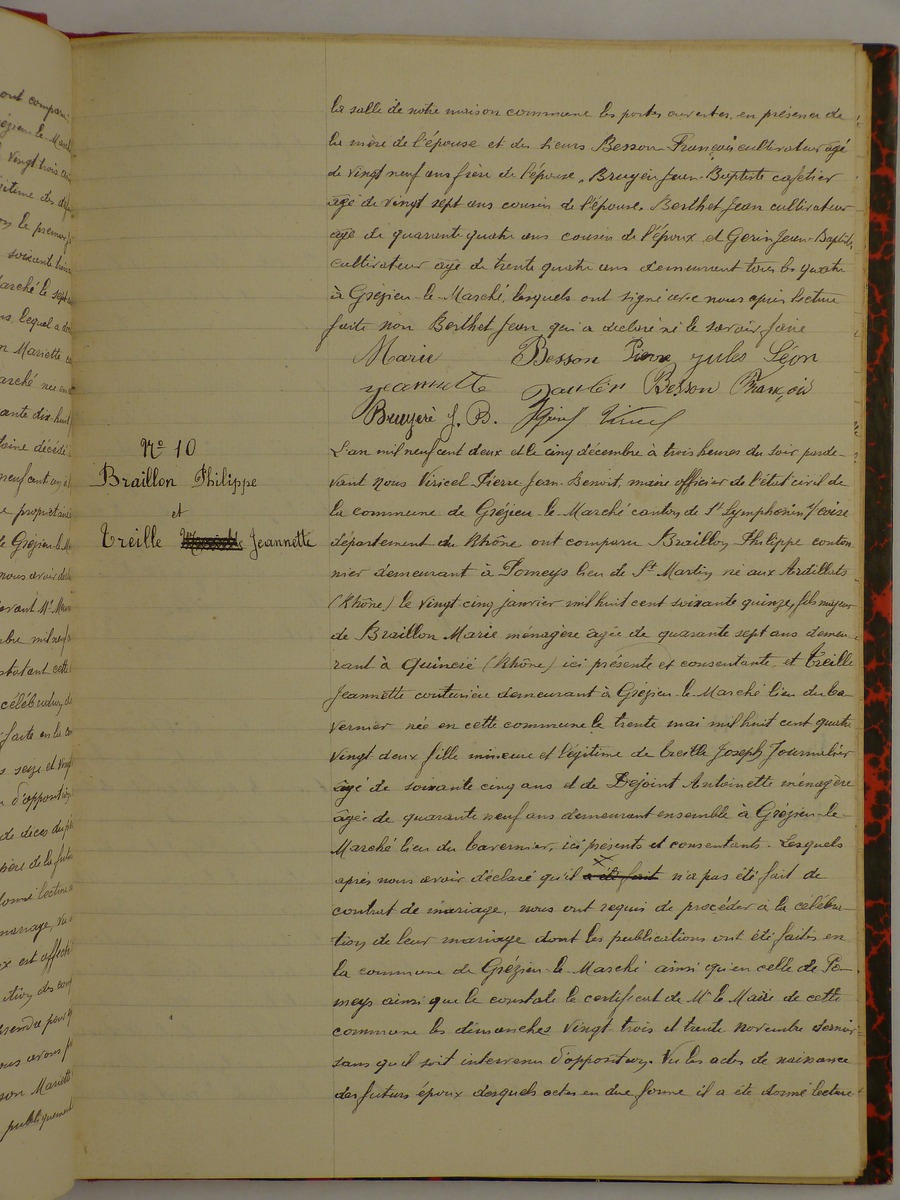 la salle de notre maison commune les portes ouvertes, en présence de
la mère de l'épouse et des sieurs Besson François cultivateur âgé
de vingt neuf ans frère de l'épouse, Bruyère Jean-Baptiste cafetier
âgé de vingt sept ans cousin de l'épouse. Berthet Jean cultivateur
âgé de quarante quatre ans cousin de l'époux et Gerin Jean-Baptiste
cultivateur âgé de trente quatre ans demeurant tous les quatre
à Grézieu-le-Marché, lesquels ont signé avec nous après lecture
faite non Berthet Jean qui a déclaré ne le savoir faire
Marie Besson Pierre Jules Léon
Jeannette Besson François
Bruyère J. B.
N° 10
Braillon Philippe
et
Treille Jeannette
L'an mil neuf cent deux et le cinq décembre à trois heures du soir parde-
vant nous Viricel Pierre Jean-Benoit, maire officier de l'état civil de
la commune de Grézieu-le-Marché canton de St Symphorien s/ Coise
département du Rhône ont comparu Braillon Philippe canton-
nier demeurant à Pomeys lieu de St Martin né aux Ardillats
(Rhône) le vingt cinq janvier mil huit cent soixante quinze, fils majeur
de Braillon Marie ménagère âgée de quarante sept ans demeu-
rant à Quincié (Rhône) ici présente et consentante, et Treille
Jeannette couturière demeurant à Grézieu-le-Marché lieu du ta-
vernier née en cette commune le trente mai mil huit cent quatre
vingt deux fille mineure et légitime de Treille Joseph Journalier
âgé de soixante cinq ans et de Dejoint Antoinette ménagère
âgée de quarante neuf ans demeurant ensemble à Grézieu-le-
Marché lieu du tavernier, ici présents et consentants. Lesquels
après nous avoir déclaré qu'il a été fait n'a pas été fait de
contrat de mariage, nous ont requis de procéder à la célébra-
tion de leur mariage dont les publications ont été faites en
la commune de Grézieu-le-Marché ainsi qu'en celle de Po-
meys ainsi que le constate le certificat de Mr le Maire de cette
commune les dimanches vingt trois et trente novembre dernier
sans qu'il soit intervenu d'opposition. Vu les actes de naissance
des futurs époux desquels actes en due forme il a été donné lecture